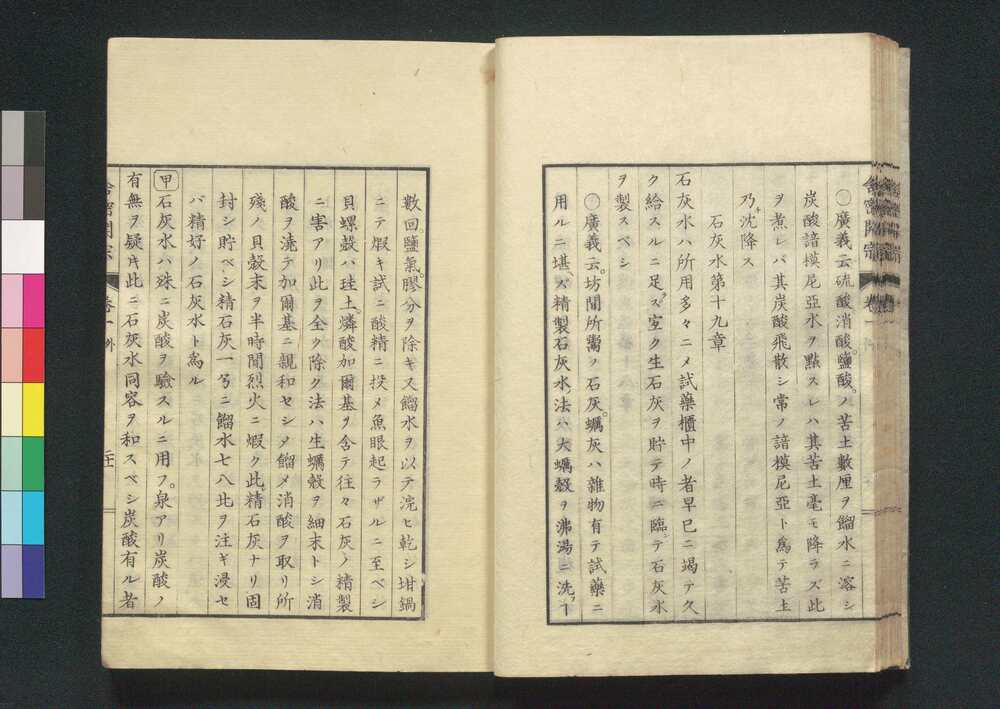 ㊀廣義云硫酸消酸鹽酸ノ苦土數厘ヲ餾水ニ溶シ
炭酸諳模尼亞水ヲ點スレハ其苦土毫モ降ラズ此
ヲ煮レバ其炭酸飛散シ常ノ諳模尼亞ト爲テ苦土
乃チ沈降ス
石灰水第十九章
石灰水ハ所用多々ニメ試藥櫃中ノ者早已ニ竭テ久
ク給スルニ足ズ室ク生石灰ヲ貯テ時ニ臨テ石灰水
ヲ製スベシ
㊀廣義云坊間所鬻ノ石灰蠣灰ハ雜物有テ試藥ニ
用ルニ堪ズ精製石灰水法ハ大蠣殼ヲ沸湯ニ洗フ丁
數回鹽氣膠分ヲ除キ又餾水ヲ以テ浣ヒ乾シ坩鍋
ニテ煆キ試ニ酸精ニ投メ魚眼起ラザルニ至ベシ
貝螺殼ハ珪土燐酸加爾基ヲ含テ往々石灰ノ精製
ニ害アリ此ヲ全ク除ク法ハ生蠣殼ヲ細末トシ消
酸ヲ澆テ加爾基ニ親和セシメ餾メ消酸ヲ取リ所
殘ノ貝殼末ヲ半時間烈火ニ煆ク此精石灰ナリ固
封シ貯ベシ精石灰一ニ餾水七八ヲ注ギ浸セ
バ精好ノ石灰水ト爲ル
甲石灰水ハ殊ニ炭酸ヲ驗スルニ用フ泉アリ炭酸ノ
有無ヲ疑片此ニ石灰水同容ヲ和スベシ炭酸有ル者
舍密開宗
卷一外